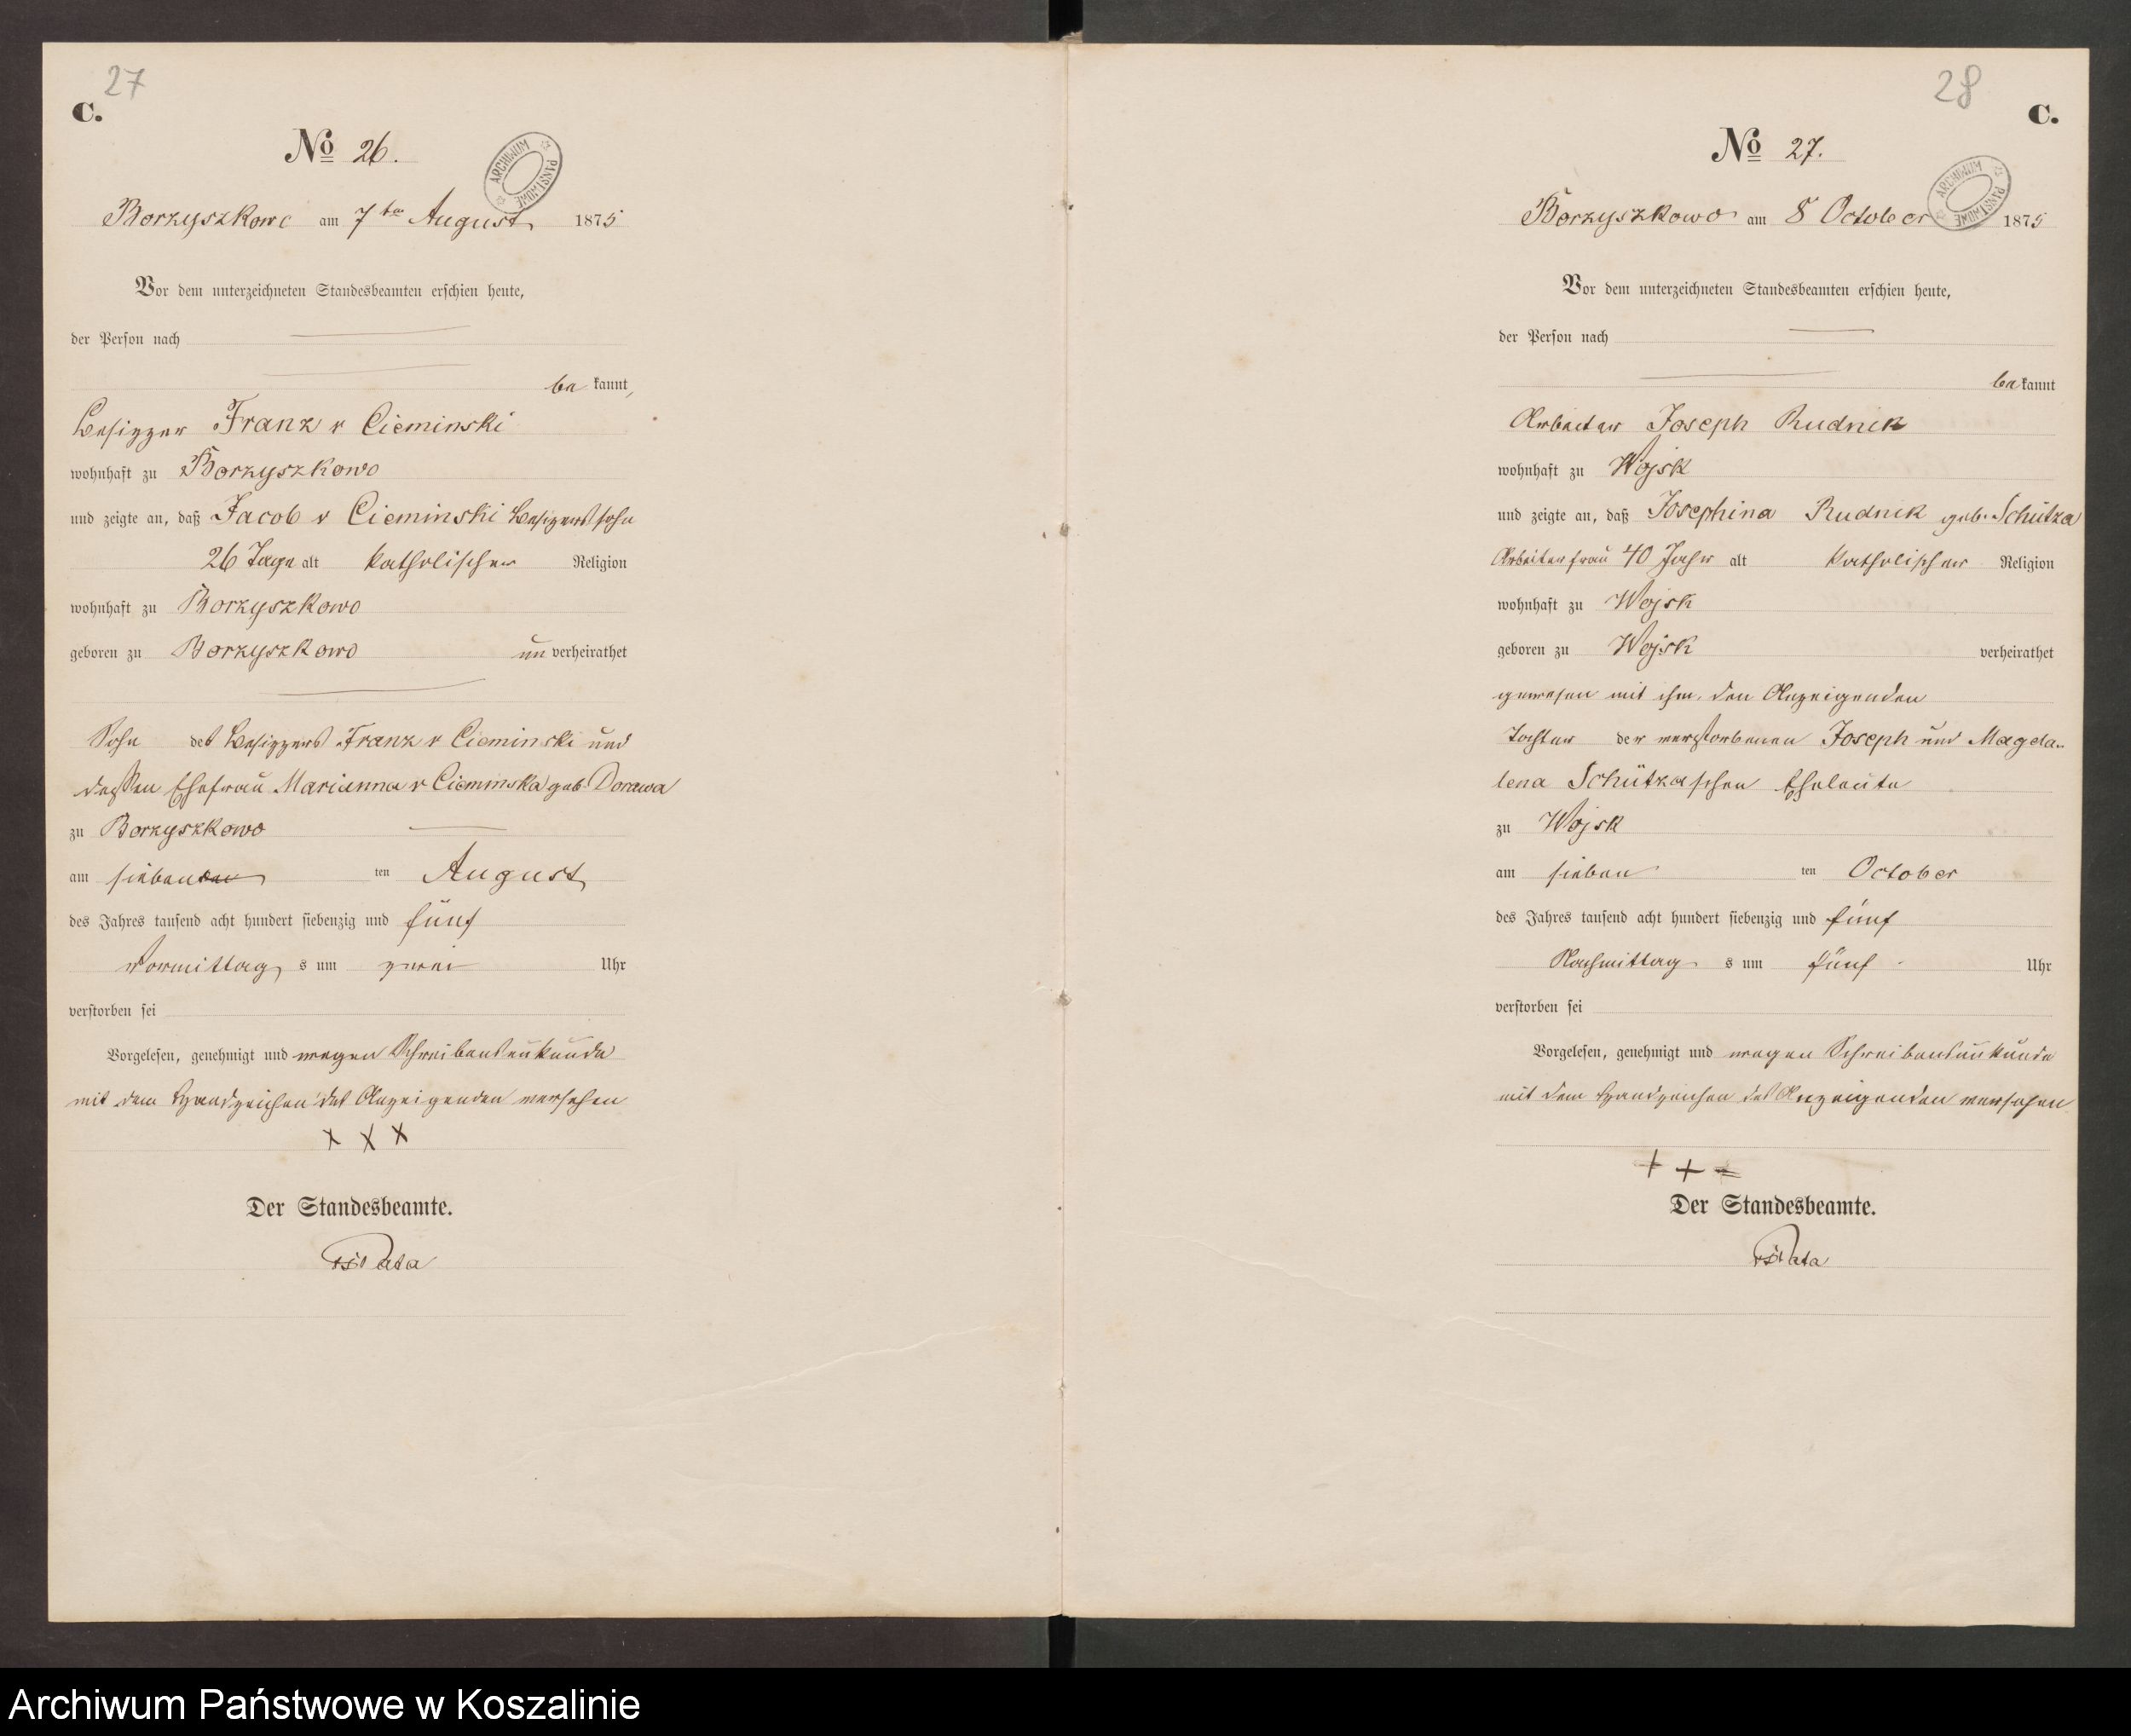 27
C.
No 26.
ARCHIWUM PAŃSTWOWE
Borzyszkowo am 7ten August 1875
Vor dem unterzeichneten Standesbeamten erschien heute,
der Person nach
bekannt,
Besitzer Franz v Cieminski
wohnhaft zu Borzyszkowo
und zeigte an, daß Jacob v Cieminski Besitzerssohn
26 Tage alt katholischer Religion
wohnhaft zu Borzyszkowo
geboren zu Borzyszkowo unverheirathet
Sohn des Besitzers Franz v Cieminski und
dessen Ehefrau Marianna v Cieminska geb.
zu Borzyszkowo
am sieben ten August
des Jahres tausend acht hundert siebenzig und fünf
Vormittags um zwei Uhr
verstorben sei
Vorgelesen, genehmigt und wegen Schreibensunkunde
mit dem Handzeichen des Anzeigenden versehen
x x x
Der Standesbeamte.
28
C.
No 27.
ARCHIWUM PAŃSTWOWE
Borzyszkowo am 8 October 1875
Vor dem unterzeichneten Standesbeamten erschien heute,
der Person nach
bekannt
Arbeiter Joseph Rudnik
wohnhaft zu Wojsk
und zeigte an, daß Josephina Rudnik geb. Schütza
Arbeiterfrau 40 Jahr alt katholischer Religion
wohnhaft zu Wojsk
geboren zu Wojsk verheirathet
gewesen mit ihm, den Anzeigenden
Tochter der verstorbenen Joseph und Magda-
lena Schützaschen Eheleute
zu Wojsk
am sieben ten October
des Jahres tausend acht hundert siebenzig und fünf
Nachmittags um fünf Uhr
verstorben sei
Vorgelesen, genehmigt und wegen Schreibensunkunde
mit dem Handzeichen des Anzeigenden versehen
+ + +
Der Standesbeamte.
Archiwum Państwowe w Koszalinie